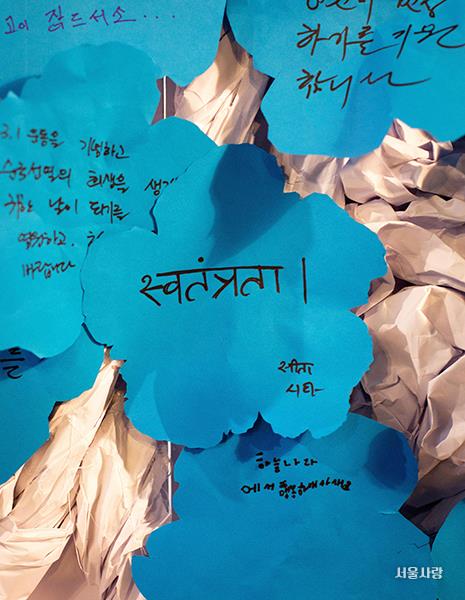 고이 잠드소서...
하기를 기원
합니다
3.1 운동을 기념하고
순국선열의 희생을 생각
하는 날이 되기를
바랍니다
स्वतंत्रता |
सीता
시타
를
하늘나라
에서 행복하세요
서울사랑